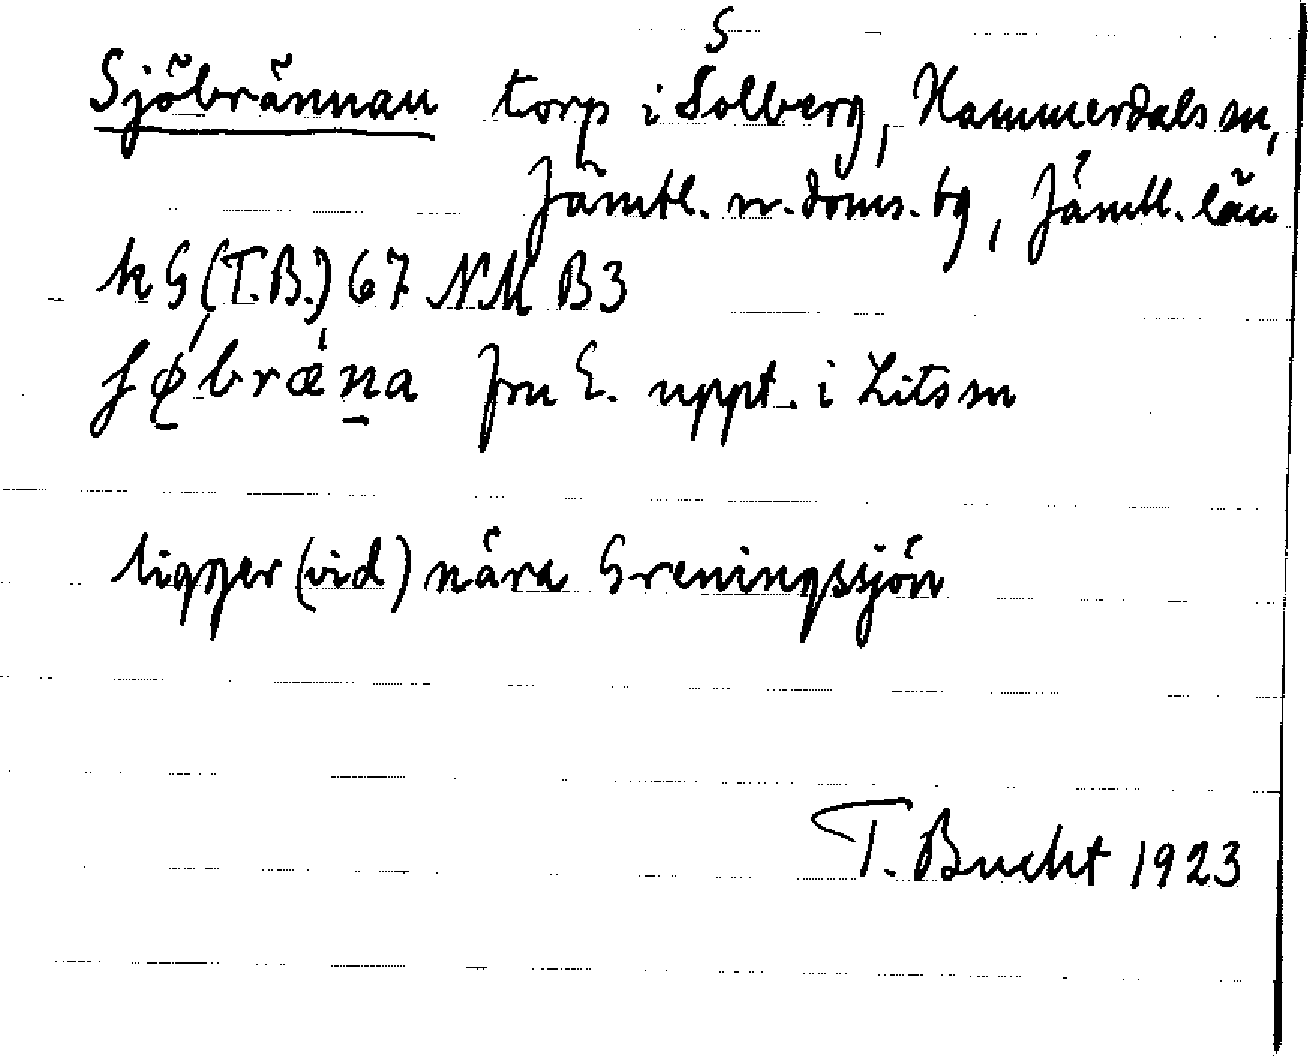 S
Sjöbrännan torp i Solberg, Hammerdals sn,
Jämtl. n. doms. tg, Jämtl. län
k G (T.B.) 67 NM B3
fǿbrǽna fru E. uppt. i Lits sn
ligger (vid) nära Greningssjön
T. Bucht 1923